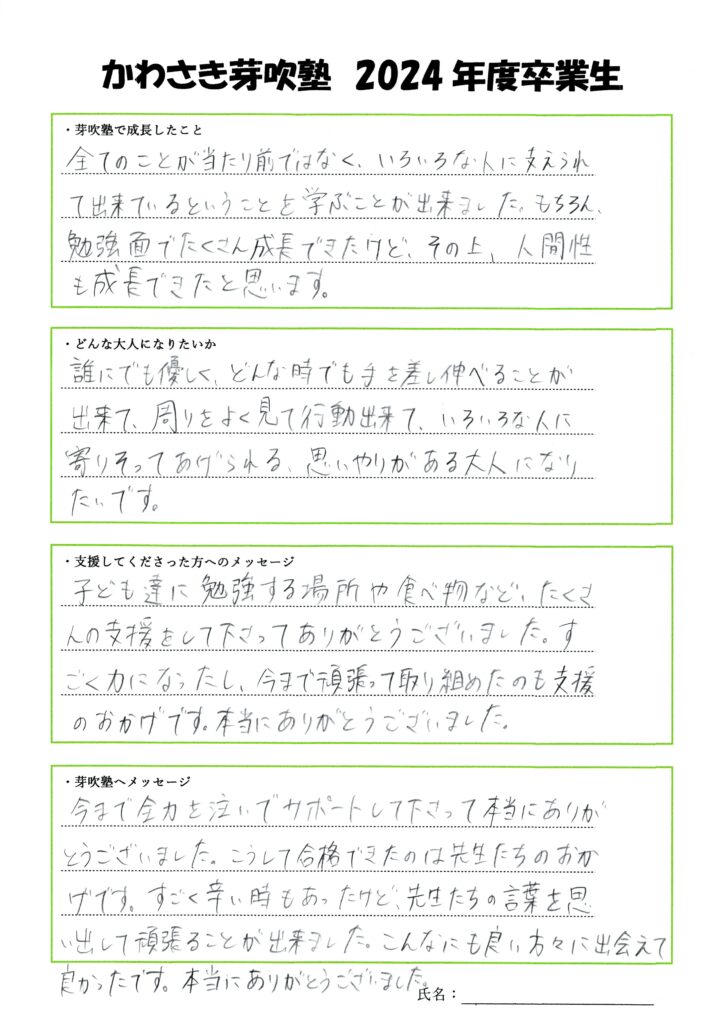 かわさき芽吹塾 2024年度卒業生
・芽吹塾で成長したこと
全てのことが当たり前ではなく、いろいろな人に支えられ
て出来ているということを学ぶことが出来ました。もちろん、
勉強面でたくさん成長できたけど、その上、人間性
も成長できたと思います。
・どんな大人になりたいか
誰にでも優しく、どんな時でも手を差し伸べることが
出来て、周りをよく見て行動出来て、いろいろな人に
寄りそってあげられる、思いやりがある大人になり
たいです。
・支援してくださった方へのメッセージ
子ども達に勉強する場所や食べ物など、たくさ
んの支援をして下さってありがとうございました。す
ごく力になったし、今まで頑張って取り組めたのも支援
のおかげです。本当にありがとうございました。
・芽吹塾へメッセージ
今まで全力を注いでサポートして下さって本当にありが
とうございました。こうして合格できたのは先生たちのおか
げです。すごく辛い時もあったけど、先生たちの言葉を思
い出して頑張ることが出来ました。こんなにも良い方々に出会えて
良かったです。本当にありがとうございました。
氏名：